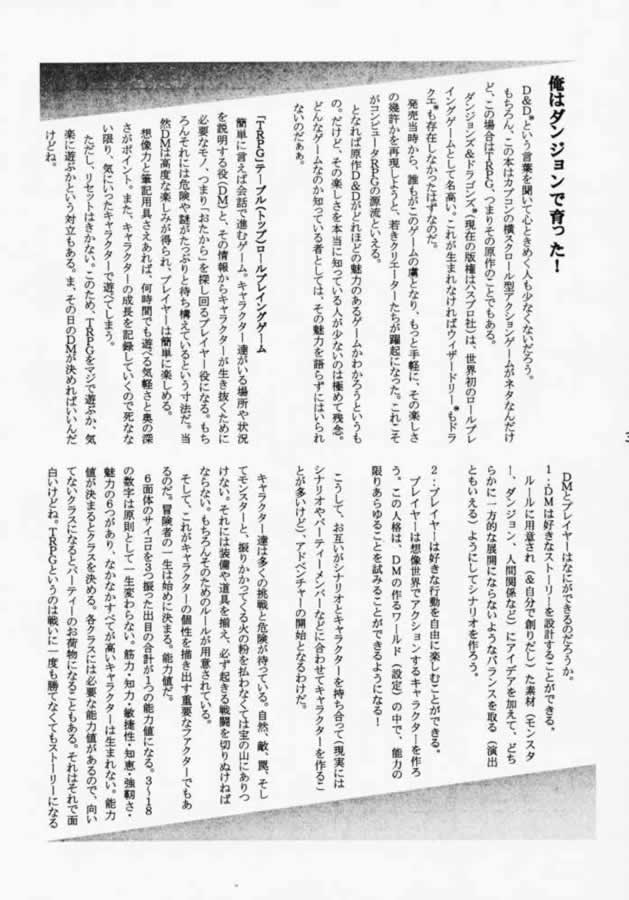 俺はダンジョンで育った！
D&D*という言葉を聞いて心ときめく人も少なくないだろう。
もちろん、この本はカプコンの横スクロール型アクションゲームがネタなんだけ
ど、この場合はTRPG、つまりその原作のことでもある。
ダンジョンズ&ドラゴンズ*（現在の版権はハスブロ社）は、世界初のロールプレ
イングゲームとして名高い。これが生まれなければウィザードリー*もドラ
クエ*も存在しなかったはずなのだ。
発売当時から、誰もがこのゲームの虜となり、もっと手軽に、その楽しさ
の幾許かを再現しようと、若きクリエーターたちが躍起になった。これこそ
がコンピュータRPGの源流といえる。
となれば原作D&Dがどれほどの魅力のあるゲームかわかろうというも
の。だけど、その楽しさを本当に知っている人が少ないのは極めて残念。
どんなゲームなのか知っている者としては、その魅力を語らずにはいられ
ないのだぁぁ。
「TRPG」テーブル（トップ）ロールプレイングゲーム
簡単に言えば会話で進むゲーム。キャラクター達がいる場所や状況
を説明する役（DM）と、その情報からキャラクターが生き抜くために
必要なモノ、つまり「おたから」を探し回るプレイヤー役になる。もち
ろんそれには危険や謎がたっぷりと待ち構えているという寸法だ。当
然DMは高度な楽しみが得られ、プレイヤーは簡単に楽しめる。
想像力と筆記用具さえあれば、何時間でも遊べる気軽さと奥の深
さがポイント。また、キャラクターの成長を記録していくので死なな
い限り、気にいったキャラクターで遊べてしまう。
ただし、リセットはきかない。このため、TRPGをマジで遊ぶか、気
楽に遊ぶかという対立もある。ま、その日のDMが決めればいいんだ
けどね。
DMとプレイヤーはなにができるのだろうか。
1．DMは好きなストーリーを設計することができる。
ルールに用意され（&自分で創りだし）た素材（モンスタ
ー、ダンジョン、人間関係など）にアイデアを加えて、どち
らかに一方的な展開にならないようなバランスを取る（演出
ともいえる）ようにしてシナリオを作ろう。
2．プレイヤーは好きな行動を自由に楽しむことができる。
プレイヤーは想像世界でアクションするキャラクターを作ろ
う。この人格は、DMの作るワールド（設定）の中で、能力の
限りあらゆることを試みることができるようになる！
こうして、お互いがシナリオとキャラクターを持ち合って（現実には
シナリオやパーティーメンバーなどに合わせてキャラクターを作るこ
とが多いけど）、アドベンチャーの開始となるわけだ。
キャラクター達は多くの挑戦と危険が待っている。自然、敵、罠、そし
てモンスターと、振りかかってくる火の粉を払わなくては宝の山にありつ
けない。それには装備や道具を揃え、必ず起きる戦闘を切りぬけねば
ならない。もちろんそのためのルールが用意されている。
そして、これがキャラクターの個性を描き出す重要なファクターでもあ
るのだ。冒険者の一生は始めに決まる。能力値だ。
6面体のサイコロを3つ振った出目の合計が1つの能力値になる。3～18
の数字は原則として一生変わらない。筋力・知力・敏捷性・知恵・強靭さ・
魅力の6つがあり、なかなかすべてが高いキャラクターは生まれない。能力
値が決まるとクラスを決める。各クラスには必要な能力値があるので、向い
てないクラスになるとパーティーのお荷物になることもある。それはそれで面
白いけどね。TRPGというのは戦いに一度も勝てなくてもストーリーになる